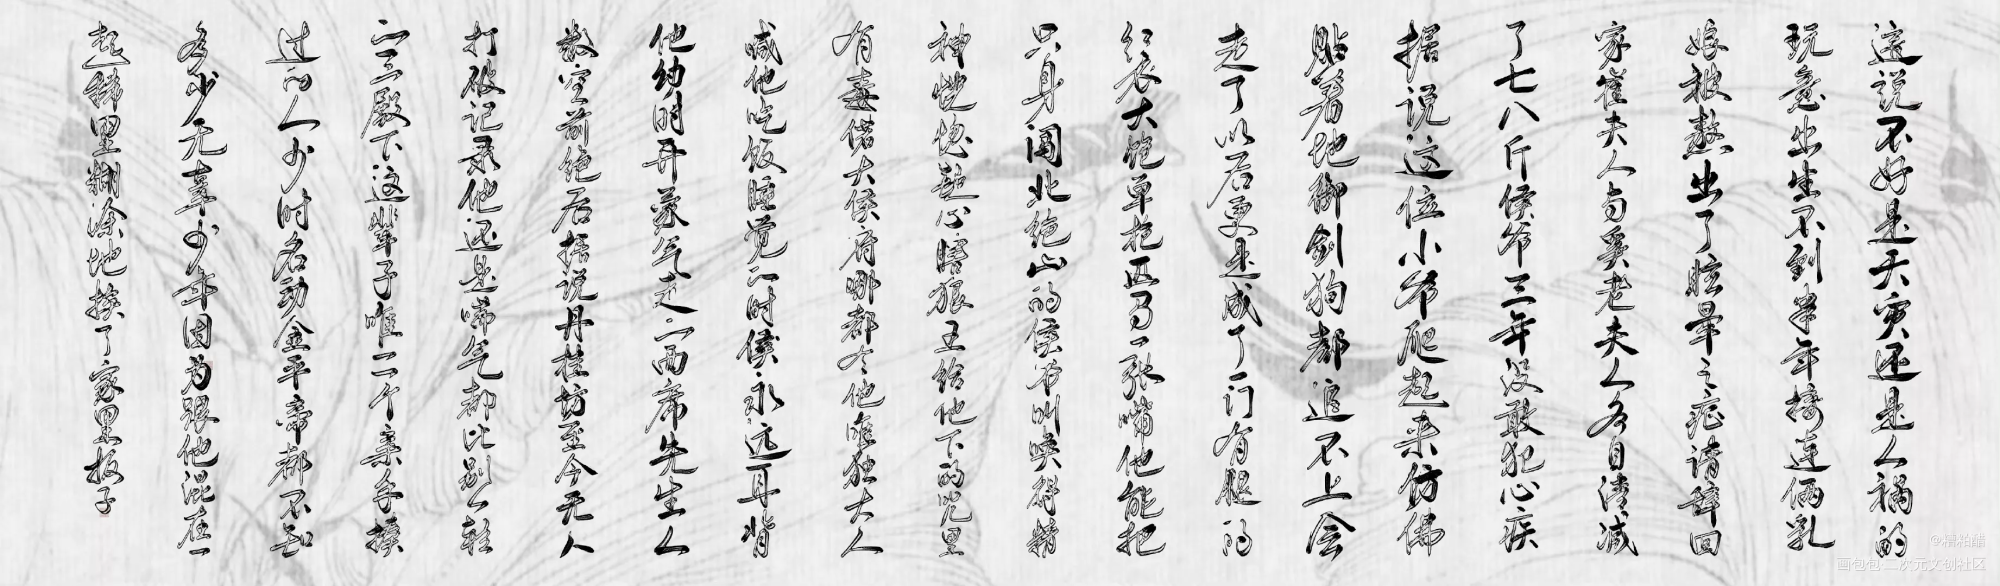 这说不好是天灾还是人祸的
玩意出生不到半年接连俩乳
娘被熬出了眩晕之症请辞回
家崔夫人与奚老夫人各自清减
了七八斤侯爷三年没敢犯心疾
据说这位小爷爬起来仿佛
贴着地御剑狗都追不上会
走了以后更是成了一门有腿的
红衣大炮单枪匹马一张嘴他能把
只身闯北绝山的侯爷叫唤得精
神恍惚疑心瞎狼王给他下的咒里
有毒偌大侯府哪都有他唯独大人
喊他吃饭睡觉的时候永远耳背
他幼时开蒙气走的西席先生人
数空前绝后据说丹桂坊至今无人
打破记录他还是喘气都比别人轻
的三殿下这辈子唯一一个亲手揍
过的人少时名动金平帝都不知
多少无辜少年因为跟他混在一
起稀里糊涂地挨了家里板子
@糟粕醋
画包包 二次元文创社区